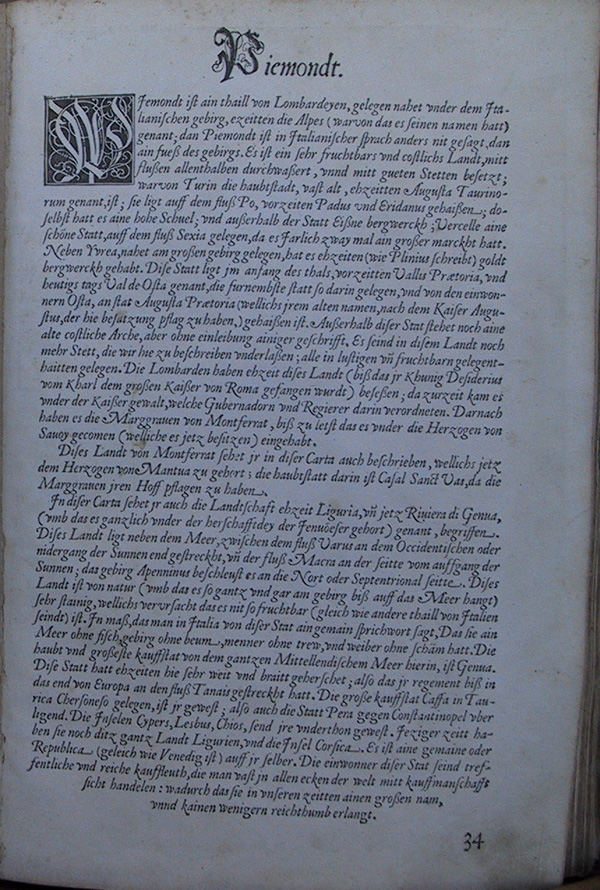 Piemondt.
Iemondt ist ain thaill von Lombardeyen, gelegen nahet vnder dem Ita-
lianischen gebirg, ezeitten die Alpes (warvon das es seinen namen hatt)
genant; dan Piemondt ist in Italianischer sprach anders nit gesagt, dan
ain fueß des gebirgs. Es ist ein sehr fruchtbars vnd costlichs Landt, mitt
flußen allenthalben durchwaßert, vnnd mitt gueten Stetten besetzt;
warvon Turin die haubtstadt, vast alt, ehzeitten Augusta Taurino-
rum genant, ist; sie ligt auff dem fluß Po, vorzeiten Padus vnd Eridanus gehaißen; do-
selbst hatt es aine hohe Schuel; vnd außerhalb der Statt Eißne bergwerckh; Vercelle aine
schöne Statt, auff dem fluß Sexia gelegen, da es Jarlich zway mal ain großer marckht hatt.
Neben Yvrea, nahet am großen gebirg gelegen, hat es ehzeiten (wie Plinius schreibt) goldt
bergwerckh gehabt. Dise Statt ligt jm anfang des thals, vorzeitten Vallis Prætoria, vnd
heutigs tags Val de Osta genant, die furnembste statt so darin gelegen, vnd von den einwon-
nern Osta, an stat Augusta Prætoria (wellichs jrem alten namen, nach dem Kaiser Augu-
stus, der hie besatzung pflag zu haben,) gehaißen ist. Außerhalb diser Stat stehet noch aine
alte costliche Arche, aber ohne einleibung ainiger geschrifft. Es seind in disem Landt noch
mehr Stett, die wir hie zu beschreiben vnderlaßen; alle in lustigen vn̄ fruchtbarn gelegent-
haitten gelegen. Die Lombarden haben ehzeit dises Landt (biß das jr Khunig Desiderius
vom Kharl dem großen Kaißer von Roma gefangen wurdt) beseßen; da zurzeit kam es
vnder der Kaißer gewalt, welche Gubernadorn vnd Regierer darin verordneten. Darnach
haben es die Marggrauen von Montferrat, biß zu letst das es vnder die Herzogen von
Sauoy gecomen (welliche es jetz besitzen) eingehabt.
Dises Landt von Montferrat sehet jr in diser Carta auch beschrieben, wellichs jetz
dem Herzogen vone Mantua zu gehort; die haubtstatt darin ist Casal Sanct Vas, da die
Marggrauen jren Hoff pflagen zu haben.
In diser Carta sehet jr auch die Landtschafft ehzeit Liguria, vn̄ jetz Riuiera di Genua,
(vmb das es ganzlich vnder der herschafftdey der Jenuoeser gehort) genant, begriffen.
Dises Landt ligt neben dem Meer, zwischen dem fluß Varus an dem Occidentischen oder
nidergang der Sunnen end gestreckht, vn̄ der fluß Macra an der seitte vom auffgang der
Sunnen; das gebirg Apenninus beschleust es an die Nort oder Septentrional seitte. Dises
Landt ist von natur (vmb das es so gantz vnd gar am gebirg biß auff das Meer hangt)
sehr stainig, wellichs vervrsacht das es nit so fruchtbar (gleich wie andere thaill von Italien
seindt) ist. In maß, das man in Italia von diser Stat ain gemain sprichwort sagt, Das sie ain
Meer ohne fisch, gebirg ohne beum, menner ohne trew, vnd weiber ohne schäm hatt. Die
haubt vnd großeste kauffstat von dem gantzen Mittellendischem Meer hierin, ist Genua.
Dise Statt hatt ehzeiten hie sehr weit vnd braitt geherschet; also das jr regement biß in
das end von Europa an den fluß Tanais gestreckht hatt. Die große kauffstat Caffa in Tau-
rica Chersoneso gelegen, ist jr gewest; also auch die Statt Pera gegen Constantinopel vber
ligend. Die Jnselen Cypers, Lesbus, Chios, send jre vnderthon gewest. Jeziger zeitt ha-
ben sie noch ditz gantz Landt Ligurien, vnd die Jnsel Corsica. Es ist eine gemaine oder
Republica (gleich wie Venedig ist) auff jr selber. Die einwonner diser Stat seind tref-
fentliche vnd reiche kauffleuth, die man vast jn allen ecken der welt mitt kauffmanschafft
sicht handelen: wadurch das sie in vnseren zeitten ainen großen nam,
vnnd kainen wenigern reichthumb erlangt.
34